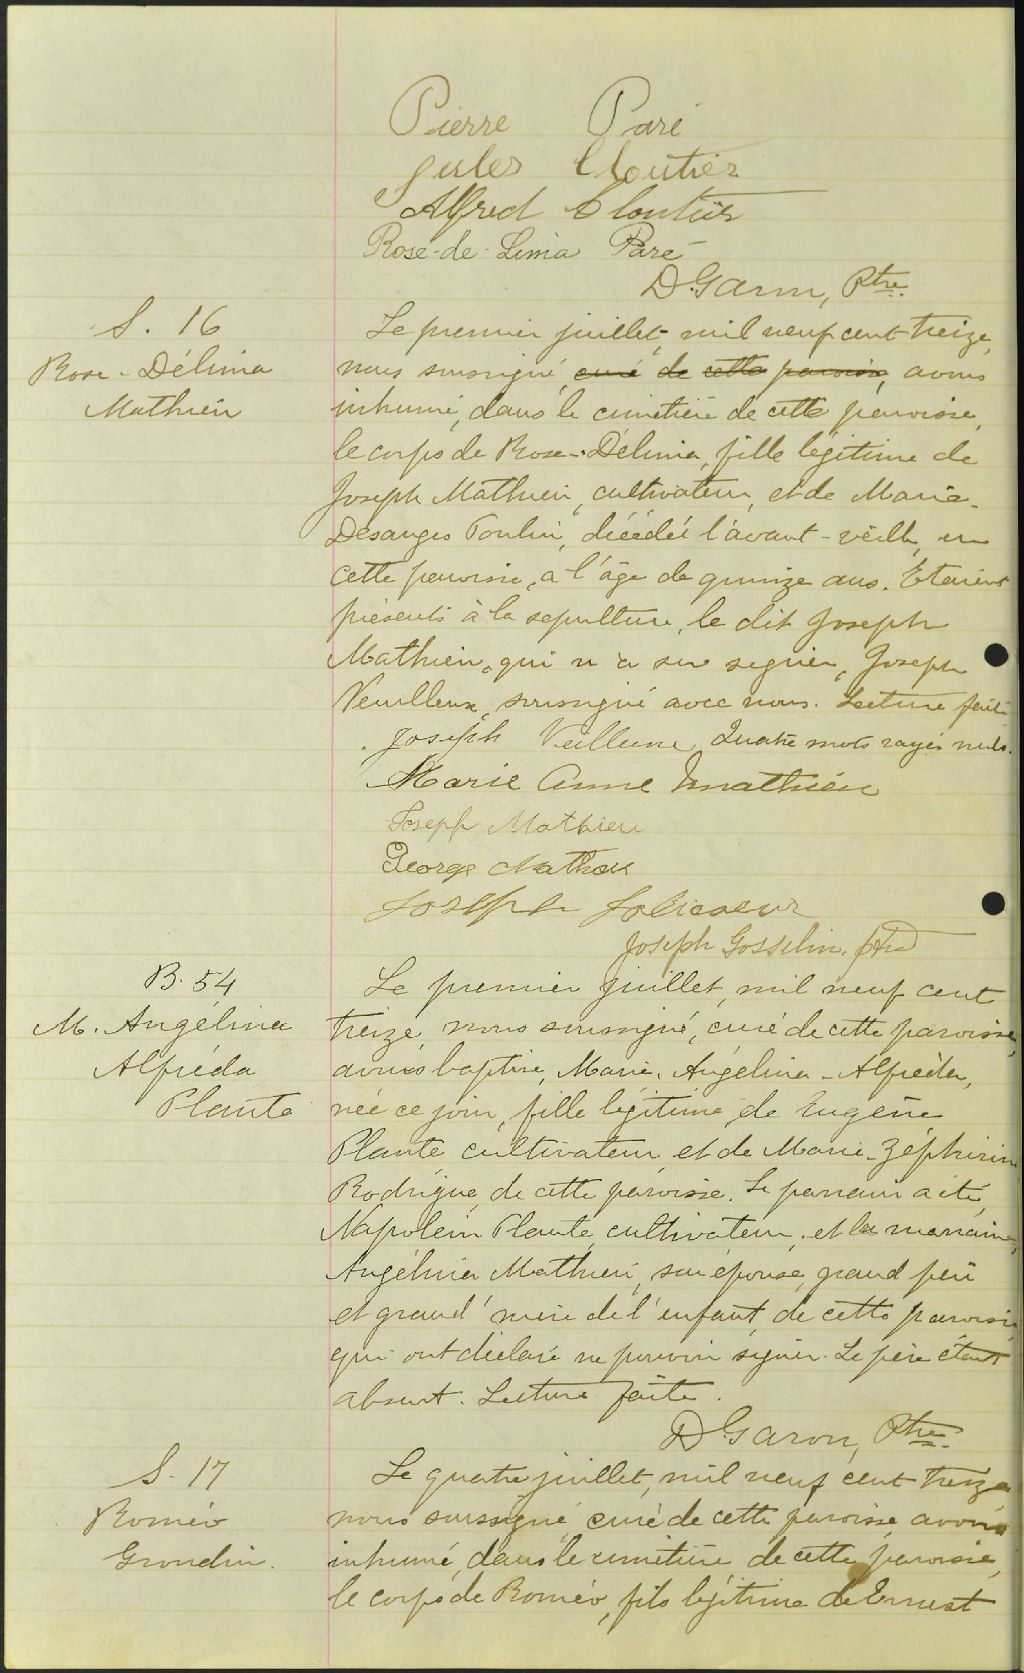 Pierre Paré
Jules Cloutier
Alfred Cloutier
Rose-de-Lima Paré
D. Garon, Ptre.
S. 16
Rose-Délima
Mathieu
Le premier juillet, mil neuf cent treize,
nous soussigné, curé de cette paroisse, avons
inhumé, dans le cimetière de cette paroisse,
le corps de Rose-Délima, fille légitime de
Joseph Mathieu, cultivateur, et de Marie-
Désanges Poulin, décédée l'avant-veille, en
cette paroisse, à l'âge de quinze ans. Etaient
présents à la sépulture, le dit Joseph
Mathieu, qui n'a su signer, Joseph
Veuilleux, soussigné avec nous. Lecture faite
Joseph Veilleux Quatre mots rayés nuls.
Marie Anne Mathieu
Joseph Mathieu
George Mathieu
Joseph Jolicoeur
Joseph Gosselin, ptre
B. 54
M. Angélina
Alfréda
Plante
Le premier juillet, mil neuf cent
treize, nous soussigné, curé de cette paroisse,
avons baptisé, Marie-Angélina-Alfréda,
née ce jour, fille légitime de Eugène
Plante cultivateur et de Marie-Zéphirine
Rodrigue, de cette paroisse. Le parrain a été,
Napoléon Plante, cultivateur, et la marraine,
Angélina Mathieu, son épouse, grand père
et grand'mère de l'enfant, de cette paroisse
qui ont déclaré ne pouvoir signer. Le père étant
absent. Lecture faite.
D. Garon, Ptre.
S. 17
Roméo
Grondin.
Le quatre juillet, mil neuf cent treize
nous soussigné, curé de cette paroisse avons
inhumé, dans le cimetière de cette paroisse,
le corps de Roméo, fils légitime de Ernest